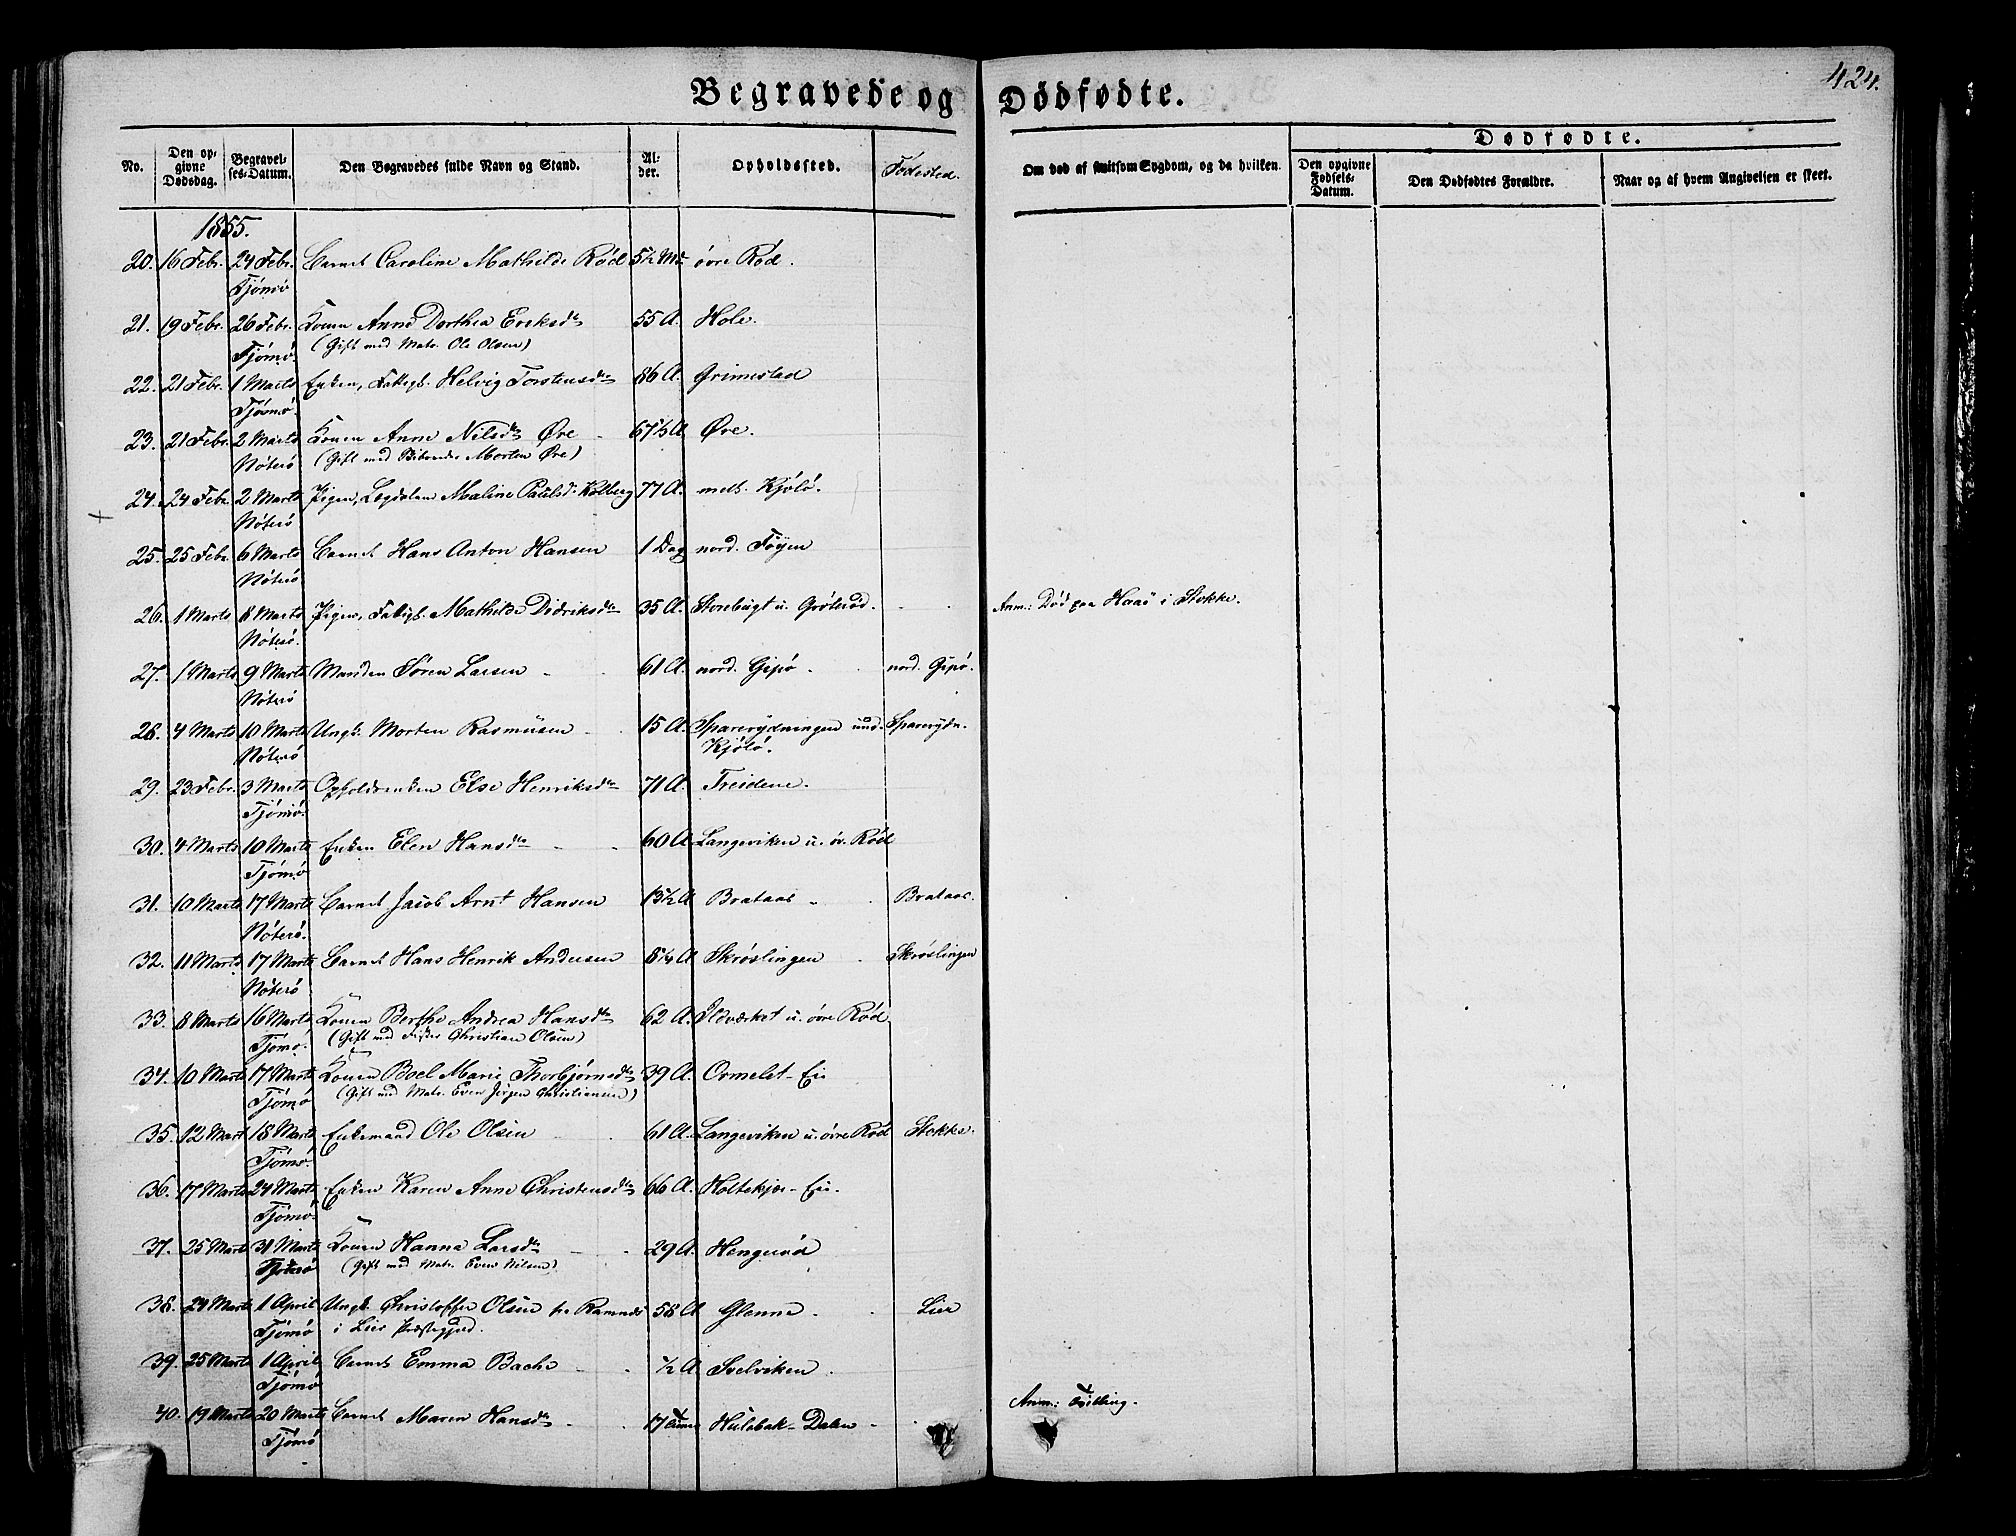 424.
Begravede og Dødfødte.
Dødfødte.
No.
Den opgivne Dødsdag.
Begravelses-Datum.
Den Begravedes fulde Navn og Stand.
Alder.
Opholdssted.
Fødested.
Om død af smitsom Sygdom, og da hvilken.
Den opgivne Fødsels-Datum.
Den Dødfødtes Forældre.
Naar og af hvem Angivelsen er skeet.
1855.
20. 16 Febr. 24 Febr. Barnet Caroline Mathilde Rød 5½ Md øvre Rød.
Tjömö
21. 19 Febr. 26 Febr. Konen Anne Dorthea Eriksdr 55 A. Hole.
Tjömö. (Gift med Matr. Ole Olsen)
22. 21 Febr. 1 Marts Enken, Fattigl. Helvig Torstensdr 86 A. Grimestad
Tjömö.
23. 21 Febr. 2 Marts Konen Anne Nilsdr Øre 67½ A Øre.
Nöterö (Gift med Morten Øre)
24. 24 Febr. 2 Marts Pigen, Logdalem Maline Paulsdr Kolberg 77 A. mels. Kjölö.
Nöterö
25. 25 Febr. 6 Marts Barnet Hans Anton Hansen 1 Dag nord. Föyen
Nöterö
26. 1 Marts 8 Marts Pigen, Fattigl. Mathilde Didriksdr 35 A. Stenbugt u. Gröterød. Anm.: Död paa Haaö i Stokke.
Nöterö.
27. 1 Marts 9 Marts Manden Sören Larsen 61 A. nord. Gipö. nord. Gipö.
Nöterö
28. 4 Marts 10 Marts Ungk. Morten Rasmusen 15 A. Sparerydningen und. Sparerydn.
Nöterö Kjölö.
29. 23 Febr. 3 Marts Opholdsenken Else Henriksdr 71 A. Treidene.
Tjömö.
30. 4 Marts 10 Marts Enken Elen Hansdr 60 A. Langeviken u. öv. Rød
Tjömö
31. 10 Marts 17 Marts Barnet Jacob Arnt Hansen 13½ A Brataas Brataas.
Nöterö.
32. 11 Marts 17 Marts Barnet Hans Henrik Andersen 8¼ A Skröslingen Skröslingen
Nöterö
33. 8 Marts 16 Marts Konen Berthe Andrea Hansdr 62 A. Ildværket u. övre Rød.
Tjömö. (Gift med Fisker Christian Olsen)
34. 10 Marts 17 Marts Konen Boel Marie Thorbjörnsdr 39 A. Ormelet-Eie
Tjömö (Gift med Matr. Even Jörgen Christiansen)
35. 12 Mart 18 Marts Enkemand Ole Olsen 61 A. Langeviken u. övre Rød Stokke.
Tjömö.
36. 17 Marts 24 Marts Enken Karen Anne Christensdr 66 A. Holtekjær-Eie.
Tjömö.
37. 25 Marts 31 Marts Konen Hanna Larsdr 29 A. Hengsröd
Nöterö (Gift med Matr. Even Nilsen)
38. 24 Marts 1 April Ungk. Christoffer Olsen fra Ramnes 58 A Glenne. Lier
Tjömö i Lier Præstegjeld.
39. 25 Marts 1 April Barnet Emma Bache ½ A Svelviken.
Tjömö
40. 19 Marts 20 Marts Barnet Maren Hansdr 17 Timer Hulebak-Dalen Anm.: Tvilling.
Tjömö